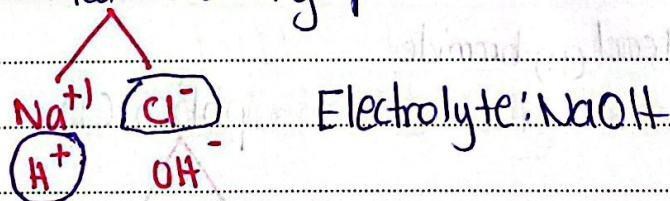 Na+1 Cl- Electrolyte: NaOH
H+ OH-